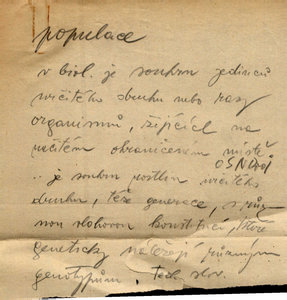 populace
v biol. je souhrn jedinců
určitého druhu nebo rasy
organismů, žijících na
určitém ohraničeném místě
OSN
.. je souhrn rostlin určitého
druhu, téže generace, s růz
nou vlohovou konstitucí, které
geneticky náležejí různým
genotypům,